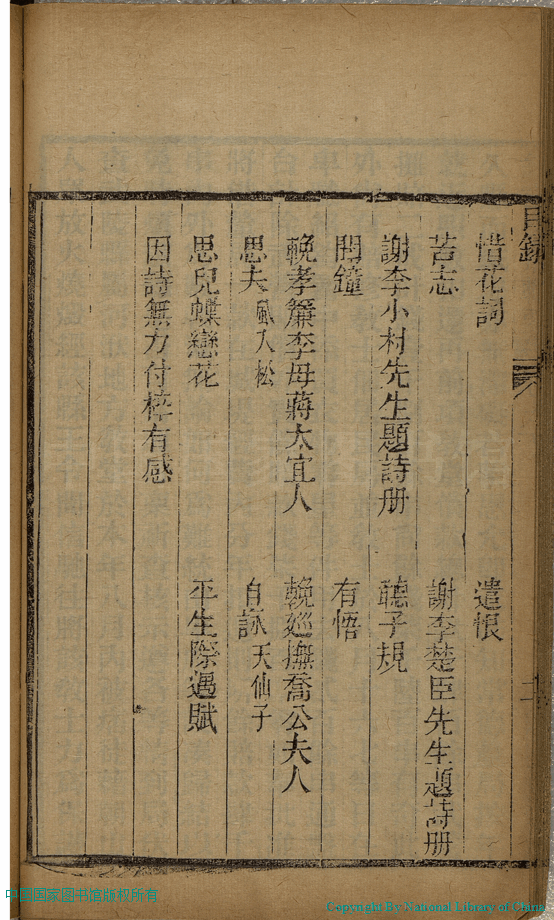 目錄
惜花詞 遣恨
苦志 謝李楚臣先生題詩册
謝李小村先生題詩册 聽子規
聞鐘 有悟
輓孝簾李母蔣太宜人 輓廵撫喬公夫人
思夫 風入松 自詠 天仙子
思兒蝶戀花 平生際遇賦
因詩無力付梓有感
中国国家图书馆版权所有
Copyright By National Library of China